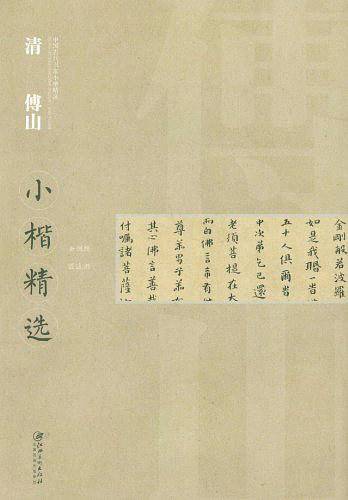 清
傅山
小楷精选
金剛般若波羅
如是我聞一旹
五十人俱爾旹
中次第乞已還
老須菩提在大
而白佛言希有
尊善男子善
其心佛言善哉
付囑諸菩薩
江西美术出版社